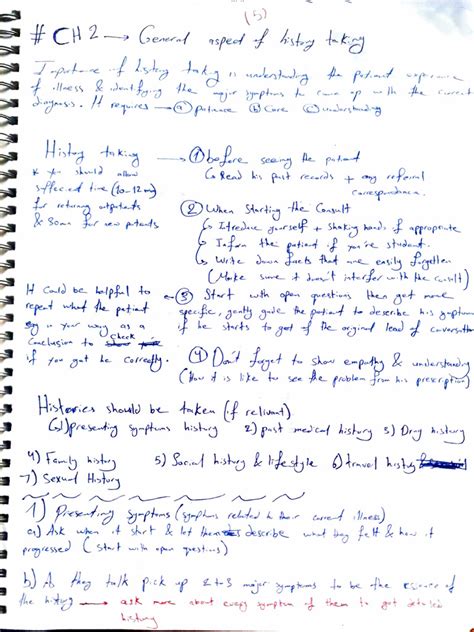 (5)
# CH 2 → General aspect of history taking
Importance of history taking is understanding the patient experience
of illness & identifying the major symptoms to come up with the correct
diagnosis. It requires → ⓐ patience ⓑ Care ⓒ understanding
History taking → ① before seeing the patient
* You should allow
↳ Read his past records + any referral
suffecient time (10-12m)
correspondence.
for returning outpatients
② When Starting the Consult
& 30m for new patents
↳ Itroduce yourself + shaking hands if appropriate
↳ Inform the patient if you're student.
↳ Write down facts that are easily forgotten
(Make sure it doesn't interfer with the consult)
It Could be helpful to ← ③ Start with open questions then get more
repeat what the patient
specific, gently guide the patient to describe his symptoms
say in your way as a
if he starts to got of the original lead of conversation
conclusion to check
if you got he correctly.
④ Don't forget to show empathy & understanding
(How it is like to see the problem from his prescription)
Histories should be taken (if relivant)
(1) presenting symptoms history 2) past medical history 3) Drug history
4) Family history 5) Social history & lifestyle 6) travel history
7) Sexual History
1) Presenting symptoms (symptoms related to their current illness)
a) Ask when it start & let them describe what they felt & how it
progressed (start with open questions)
b) As they talk pick up 2 to 3 major symptoms to be the essence of
the history → ask more about every symptom of them to get detailed
history